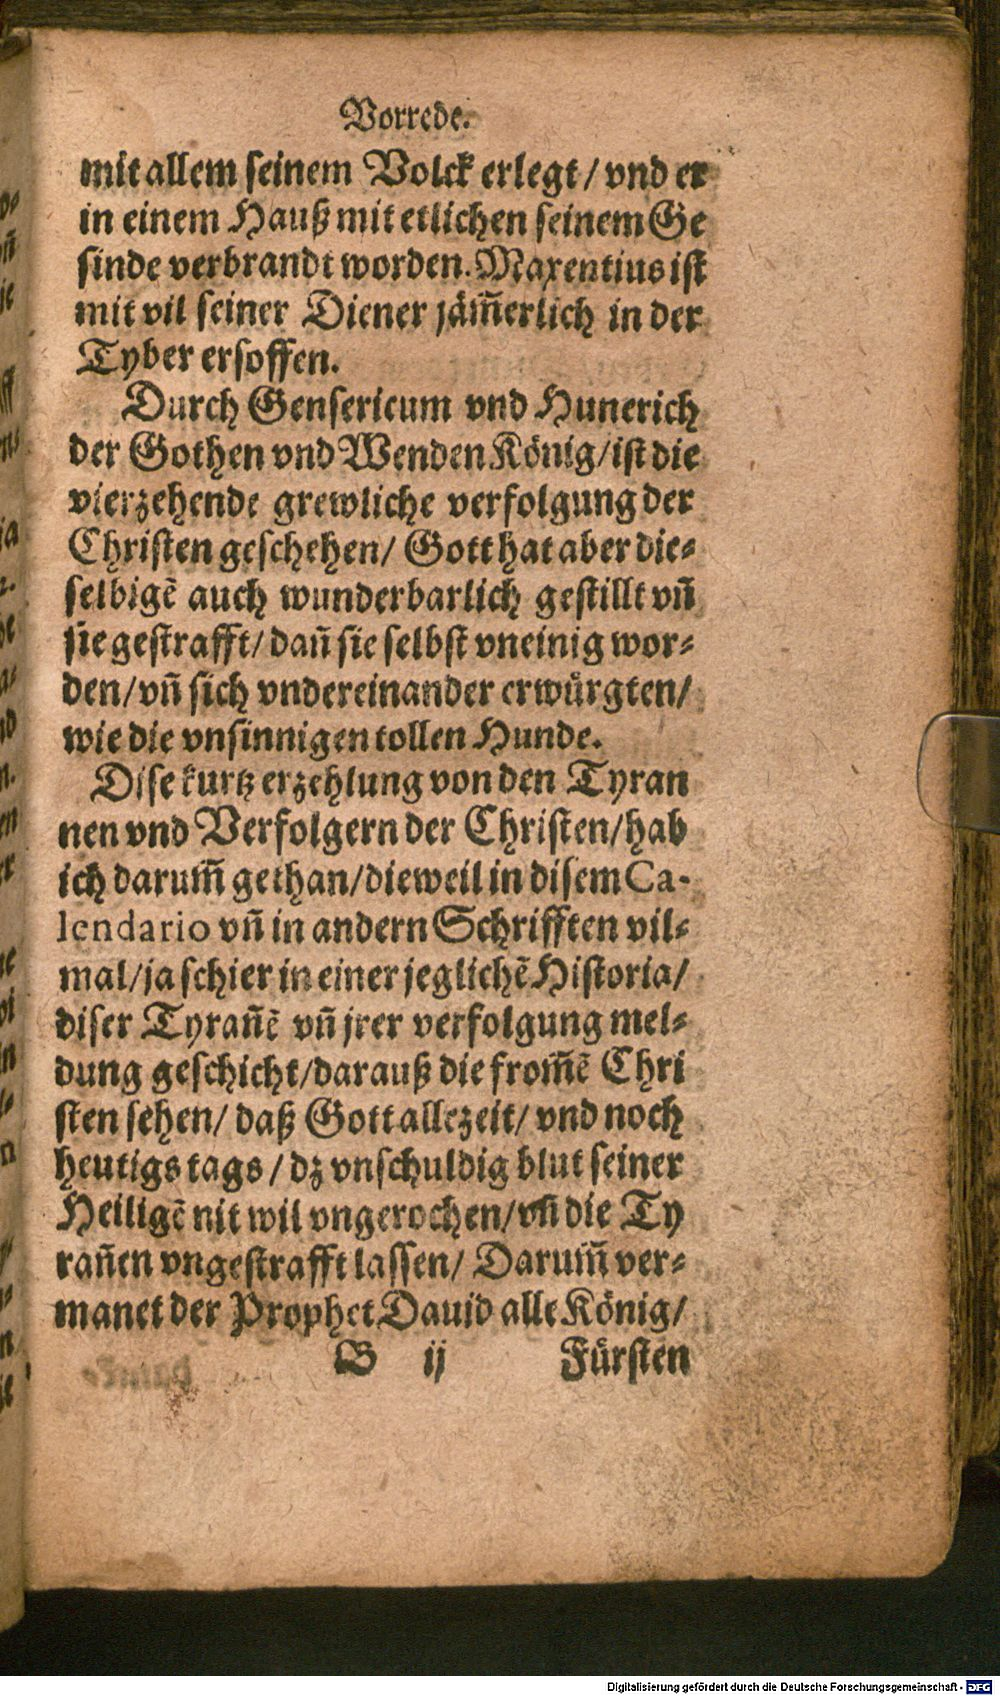 Vorrede.
mit allem seinem Volck erlegt / vnd er
in einem Hauß mit etlichen seinem Ge
sinde verbrandt worden. Maxentius ist
mit vil seiner Diener jäm̃erlich in der
Tyber ersoffen.
Durch Gensericum vnd Hunerich
der Gothen vnd Wenden König / ist die
vierzehende grewliche verfolgung der
Christen geschehen / Gott hat aber die-
selbigẽ auch wunderbarlich gestillt vñ
sie gestrafft / dañ sie selbst vneinig wor-
den / vñ sich vndereinander erwürgten /
wie die vnsinnigen tollen Hunde.
Dise kurtz erzehlung von den Tyran
nen vnd Verfolgern der Christen / hab
ich darum̃ gethan / dieweil in disem Ca-
lendario vñ in andern Schrifften vil-
mal / ja schier in einer jeglichẽ Historia /
diser Tyrañẽ vñ jrer verfolgung mel-
dung geschicht / darauß die from̃ẽ Chri
sten sehen / daß Gott allezeit / vnd noch
heutigs tags / dz vnschuldig blut seiner
Heiligẽ nit wil vngerochen / vñ die Ty
rañen vngestrafft lassen / Darum̃ ver-
manet der Prophet Dauid alle König /
B ij Fürsten
Digitalisierung gefördert durch die Deutsche Forschungsgemeinschaft - DFG